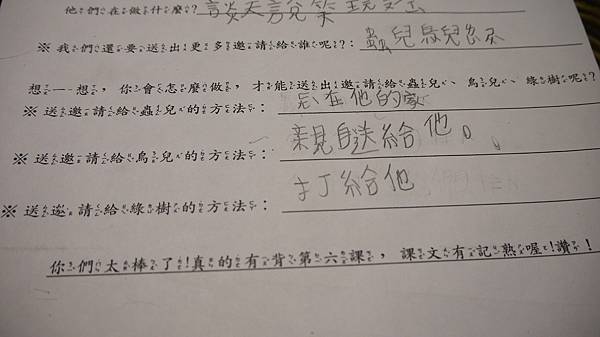 他們在做什麼? 談天說笑
※ 我們還要送出更多邀請給誰呢?: 蟲兒鳥兒
想一想, 你會怎麼做, 才能送出邀請給蟲兒、鳥兒、綠樹呢?
※ 送邀請給蟲兒的方法: 在他的家
※ 送邀請給鳥兒的方法: 親自送給他。
※ 送邀請給綠樹的方法: 打給他
你們太棒了!真的有背第六課, 課文有記熟喔!讚!